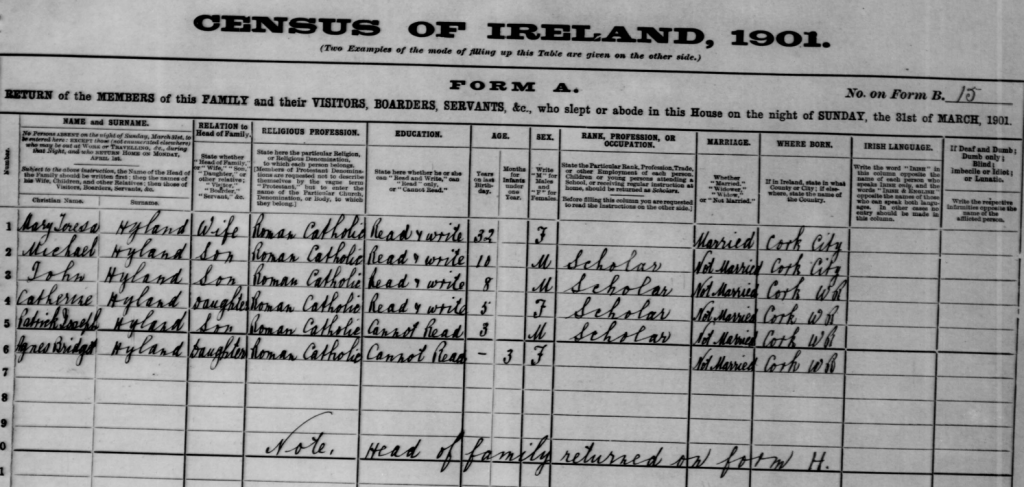 CENSUS OF IRELAND, 1901.
(Two Examples of the mode of filling up this Table are given on the other side.)
FORM A.
No. on Form B. 15
RETURN of the MEMBERS of this FAMILY and their VISITORS, BOARDERS, SERVANTS, &c., who slept or abode in this House on the night of SUNDAY, the 31st of MARCH, 1901.
Number. NAME and SURNAME. RELATION to Head of Family. RELIGIOUS PROFESSION. EDUCATION. AGE. SEX. RANK, PROFESSION, OR OCCUPATION. MARRIAGE. WHERE BORN. IRISH LANGUAGE. If Deaf and Dumb; Dumb only; Blind; Imbecile or Idiot; or Lunatic.
Christian Name. Surname.
1 Mary Teresa Hyland Wife Roman Catholic Read & write 32 F Married Cork City
2 Michael Hyland Son Roman Catholic Read & write 10 M Scholar Not Married Cork City
3 John Hyland Son Roman Catholic Read & write 8 M Scholar Not Married Cork W R
4 Catherine Hyland Daughter Roman Catholic Read & write 5 F Scholar Not Married Cork W R
5 Patrick Joseph Hyland Son Roman Catholic Cannot Read 3 M Scholar Not Married Cork W R
6 Agnes Bridget Hyland Daughter Roman Catholic Cannot Read - 3 F Not Married Cork W R
7
8
9
Note. Head of family returned on form H.